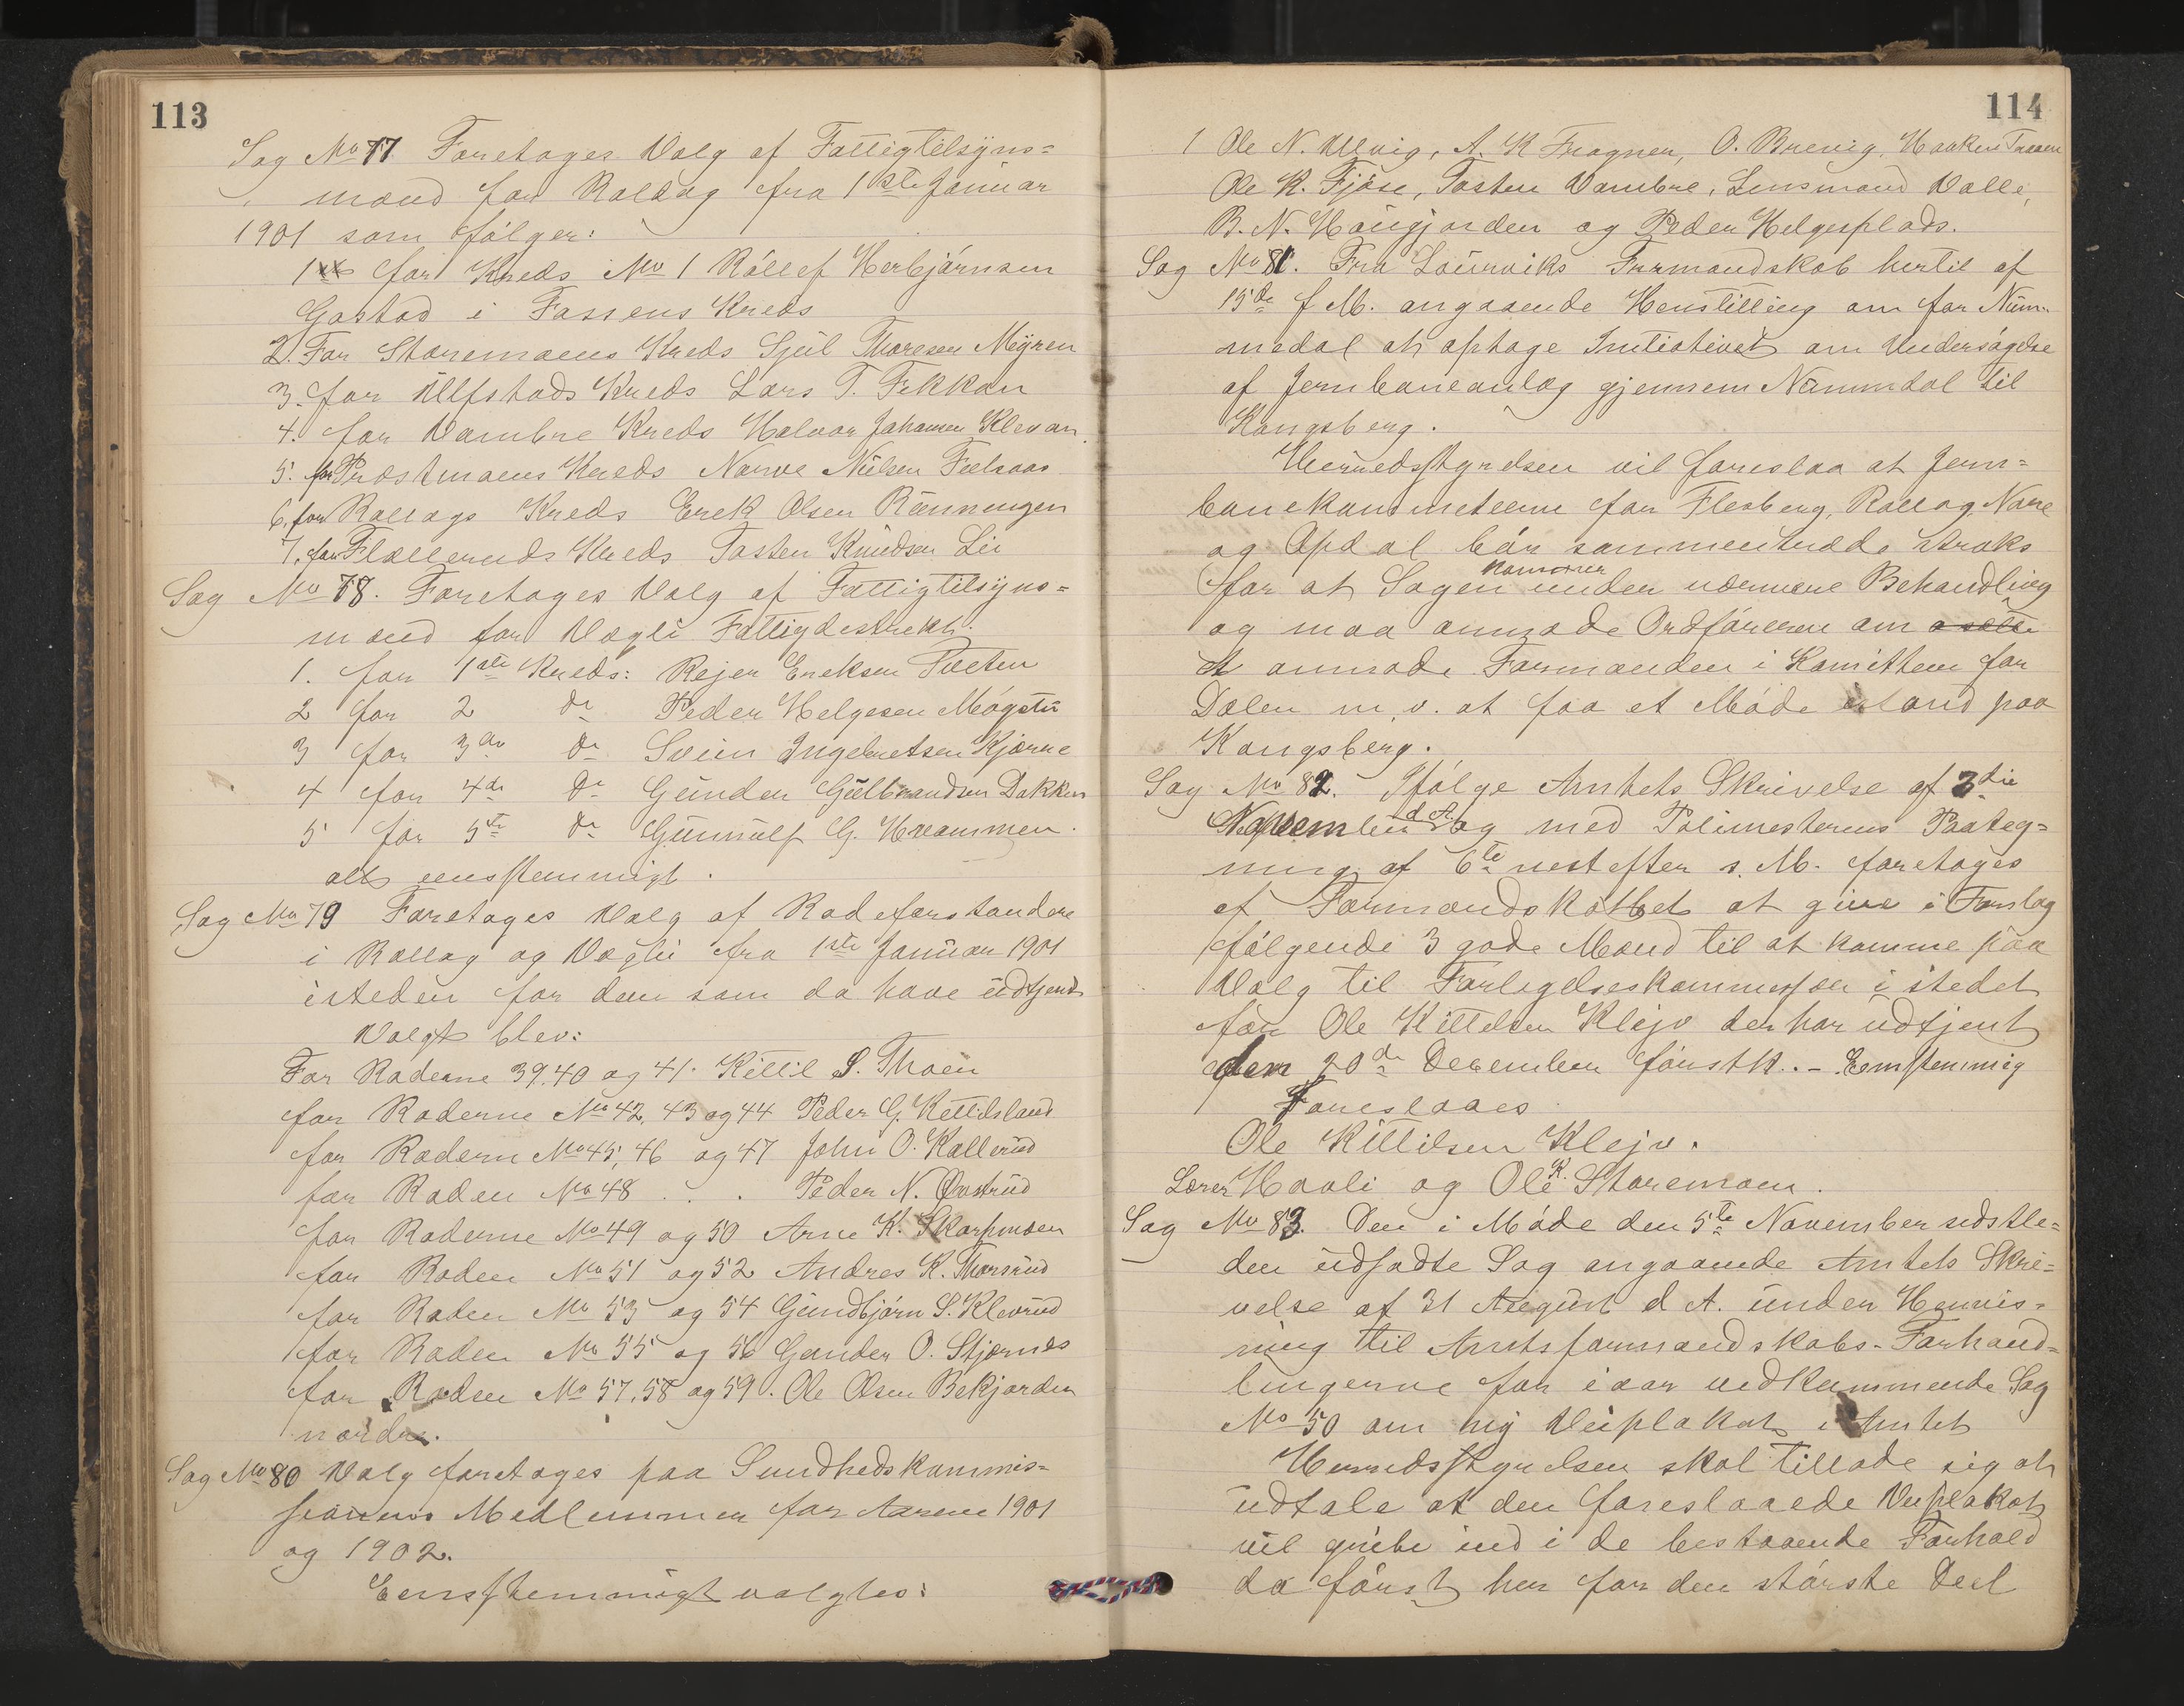 113
Sag No 77. Foretages Valg af Fattigtilsyns=
mænd for Rollag fra 1ste Januar
1901 som følger:
1 for Kreds No 1 Rollef Herbjørnsen
Gostad i Fossens Kreds
2. For Storemoens Kreds Sjul Thoresen Mÿren
3. for Ulfstads Kreds Lars T. Fekkan
4. for Vambre Kreds Halvor Johannesen Klevan
5. for Præstmoens Kreds Narve Nilsen
6. for Rollags Kreds Erek Olsen Rønningen
7. for Kreds Tosten Knudsen Lii
Sag No 78. Foretages Valg af Fattigtilsyns=
mænd for Vægli Fattigdestrekt.
1. for 1ste Kreds: Rejer Ereksen Tveten
2 for 2 do Peder Helgesen Møgstu
3 for 3die do Svein Ingebretsen Kjørne
4 for 4de do Gunder Gulbrandsen Dokken
5 for 5te do Gunnulf G. Hvammen.
alt eensstemmigt.
Sag No 79 Foretages Valg af Rodeforstandere
i Rollag og Vægli fra 1ste Januar 1901
isteden for dem som da have udtjent
Valgt blev:
For Roderne 39. 40 og 41. Kittil S. Thoen
for Roderne No 42, 43 og 44 Peder G. Kittilsland
for Rodern No 45, 46 og 47 John O. Kallerud
for Roden No 48 . . . Peder N. Øvstrud
for Roderne No 49 og 50 Arne K. Skarpmoen
for Roden No 51 og 52 Andres K. Thorsrud
for Roden No 53 og 54 Gundbjørn S. Klevrud
for Roden No 55 og 56 Gunder O. Stjærnes
for Roden No 57. 58 og 59. Ole Olsen Bekjorden
nordre.
Sag No 80 Valg foretages paa Sundhedskommis-
sionens Medlemmer for Aarene 1901
og 1902.
Eensstemmigt valgtes:
114
1 Ole N. Ulvig, A. K Fragner, O. Brevig, Haaken Traaen
Ole K. Fjøse, Tosten Vambre, Lensmand Valle,
B. N. Haugjorden og Peder Helgesplads.
Sag No 81. Fra Laurviks Formandskab hertil af
15de f M. angaaende Henstilling om for Num-
medal at optage Initiativet om Undersøgelse
af Jernbaneanlæg gjennem Nummdal til
Kongsberg.
Herredsstyrelsen vil foreslaa at Jern=
banekommiteerne for Flesberg, Rollag, Nore
og Opdal bør sammentræde straks
for at Sagen kommer under nærmere Behandling
og maa anmode Ordføreren om
at anmode Formanden i Komitteen for
Dalen m. v. at faa et Møde istand paa
Kongsberg.
Sag No 82. Ifølge Amtets Skrivelse af 3die
November d A. og med Polimesterens Paateg=
ning af 6te nestefter s. M. foretoges
af Formandskabet at give i Forslag
følgende 3 gode Mænd til at komme paa
Valg til Forligelseskommissær i stedet
for Ole Kittelsen Klejv der har udtjent
den 20de December førstk. - Eenstemmig
Foreslaaes
Ole Kittilsen Klejv.
Lærer Haali og Ole K. Storemoen.
Sag No 83. Den i Møde den 5te November sidstle=
den udsadte Sag angaaende Amtets Skri=
velse af 31 August d A. under Henvis=
ning til Amtsformandskabs-Forhand=
lingerne for iaar vedkommende Sag
No 50 om ny Veiplakat i Amtet
Herredsstyrelsen skal tillade sig at
udtale at den foreslaaede Veiplakat
vil gribe ind i de bestaaende Forhold
da først her for den største Deel